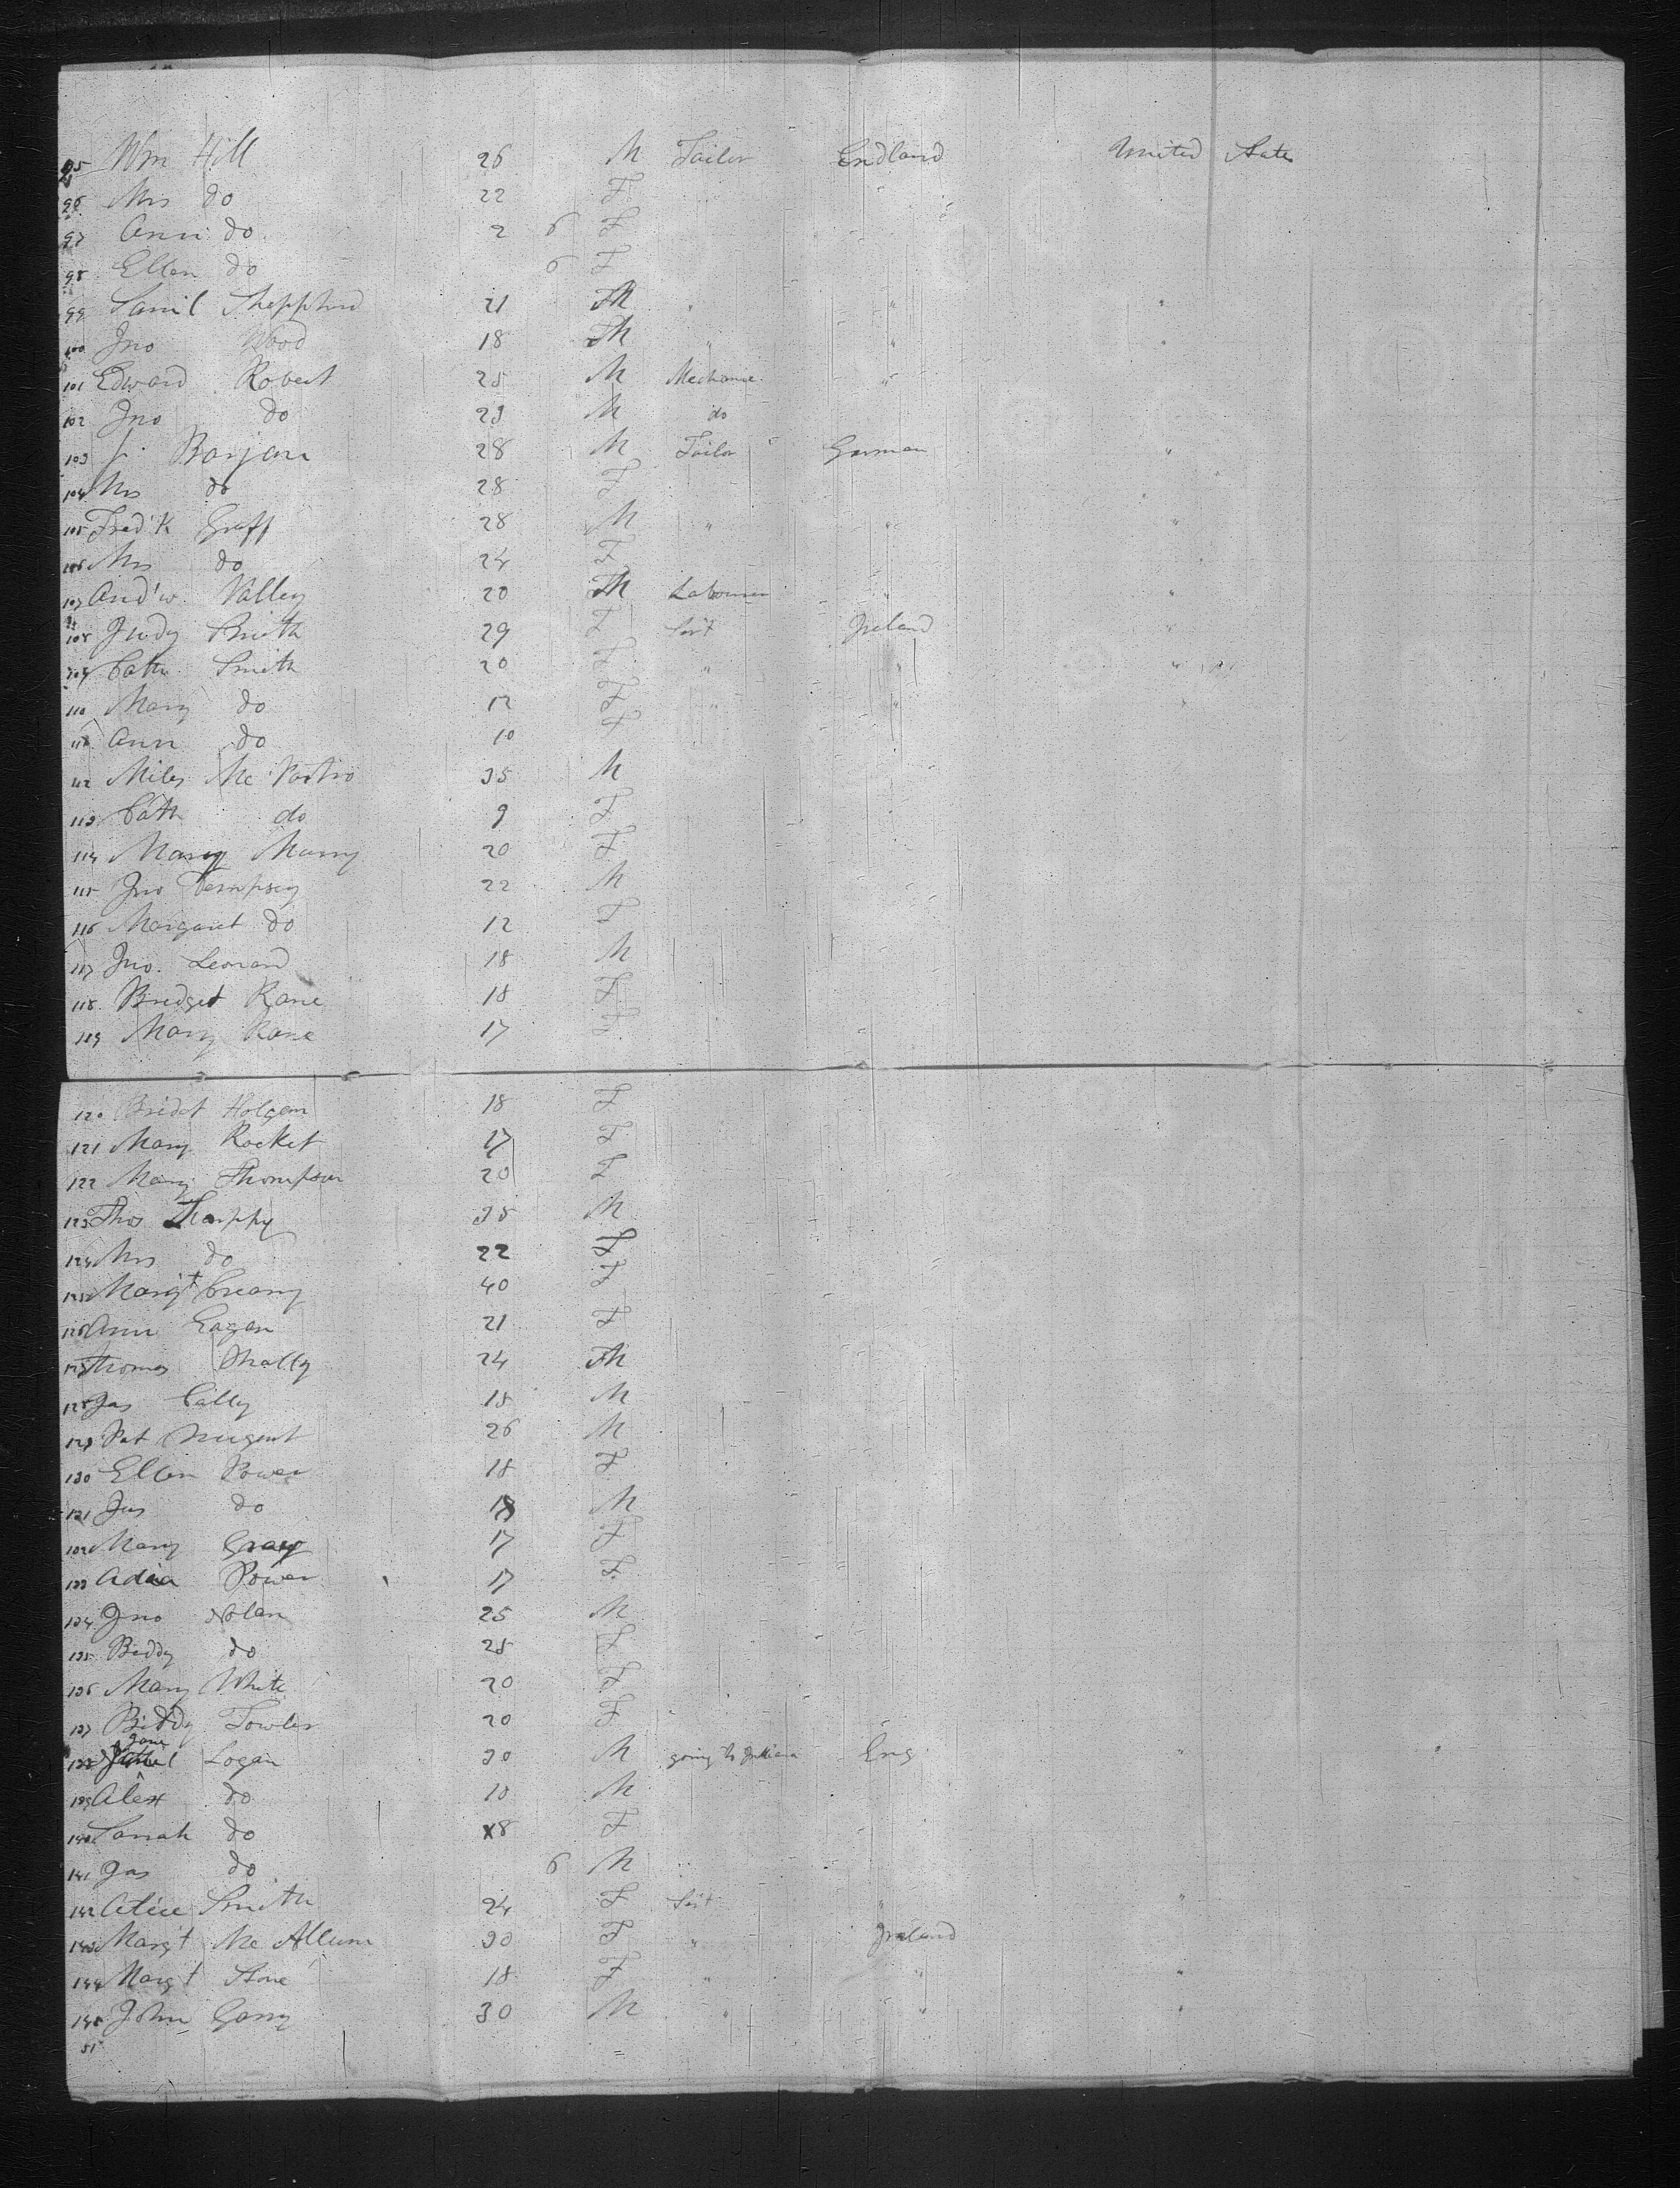 95 Wm Hill 26 M Tailor Endland United States
96 Mrs do 22 F "
97 Ann do 2 6 F "
98 Ellen do 6 F
99 Saml Sheppherd 21 M " " "
100 Jno Wood 18 M " " "
101 Edward Robert 25 M Mechanic "
102 Jno do 23 M do
103 Barjan 28 M Tailor German "
104 Mrs do 28 F "
105 Fred'k Graff 28 M " " "
106 Mrs do 24 F
107 And'w Valley 20 M Labourer " "
108 Judy Smith 29 F Ser't Ireland "
109 Cath Smith 20 F " " "
110 Mary do 12 F " "
111 Ann do 10 F
112 Miles Mc 35 M
113 Cath do 9 F
114 Mary Murry 20 F
115 Jno Dempsey 22 M
116 Margaret do 12 F
117 Jno. Leonard 18 M
118 Bridget Kane 18 F
119 Mary Kane 17 F
120 Bridet Holgan 18 F
121 Mary Rocket 17 F
122 Mary Thompson 20 F
123 Thos 35 M
124 Mrs do 22 F
125 Marg't Creamy 40 F
126 Ann Eagan 21 F
127 Thomas Mally 24 M
128 Jas Cally 18 M
129 Pat Nugent 26 M
130 Ellen Power 18 F
131 Jas do 18 M
132 Mary Gray 17 F
133 Power 17 F
134 Jno Nolan 25 M
135 Biddy do 25 F
136 Mary White 20 F
137 Biddy Fowler 20 F
138 Logan 30 M going to Eng " "
139 Alex do 10 M
140 Sarrah do 8 F
141 Jas do 6 M
142 Alice Smith 24 F Ser't " "
143 Marg't Mc Allum 30 F " Ireland
144 Marg't Stone 18 F " " "
145 John Garry 30 M " " "
51